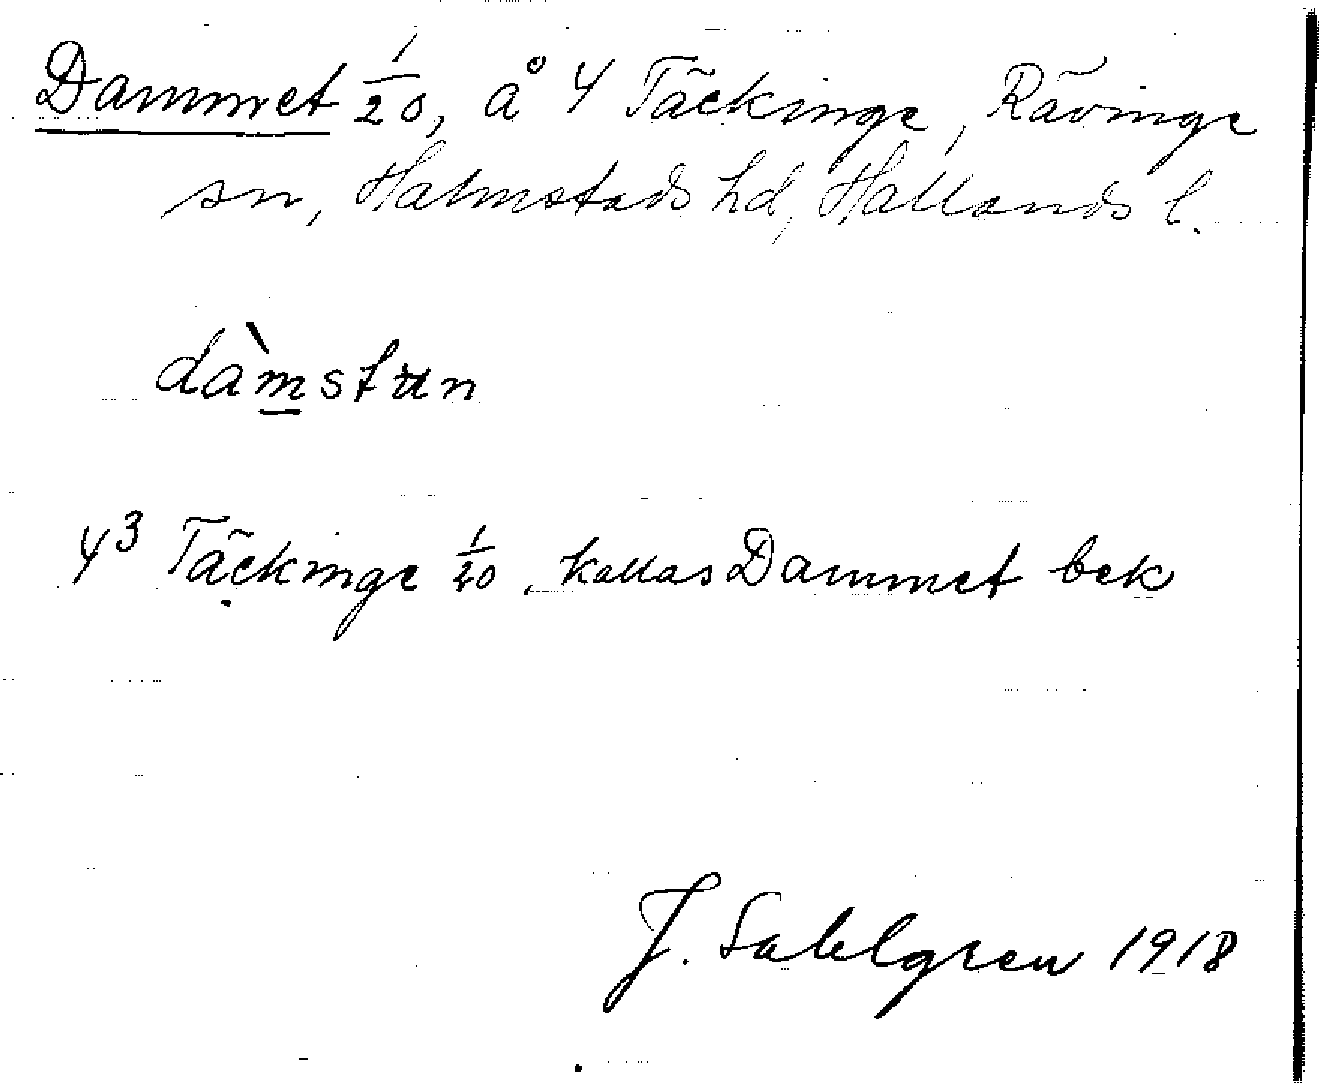 Dammet 1/20, å 4 Täckinge, Rävinge
sn, Halmstads hd, Hallands l.
dàmstun
4³ Täckinge 1/20, kallas Dammet bek
J. Sahlgren 1918